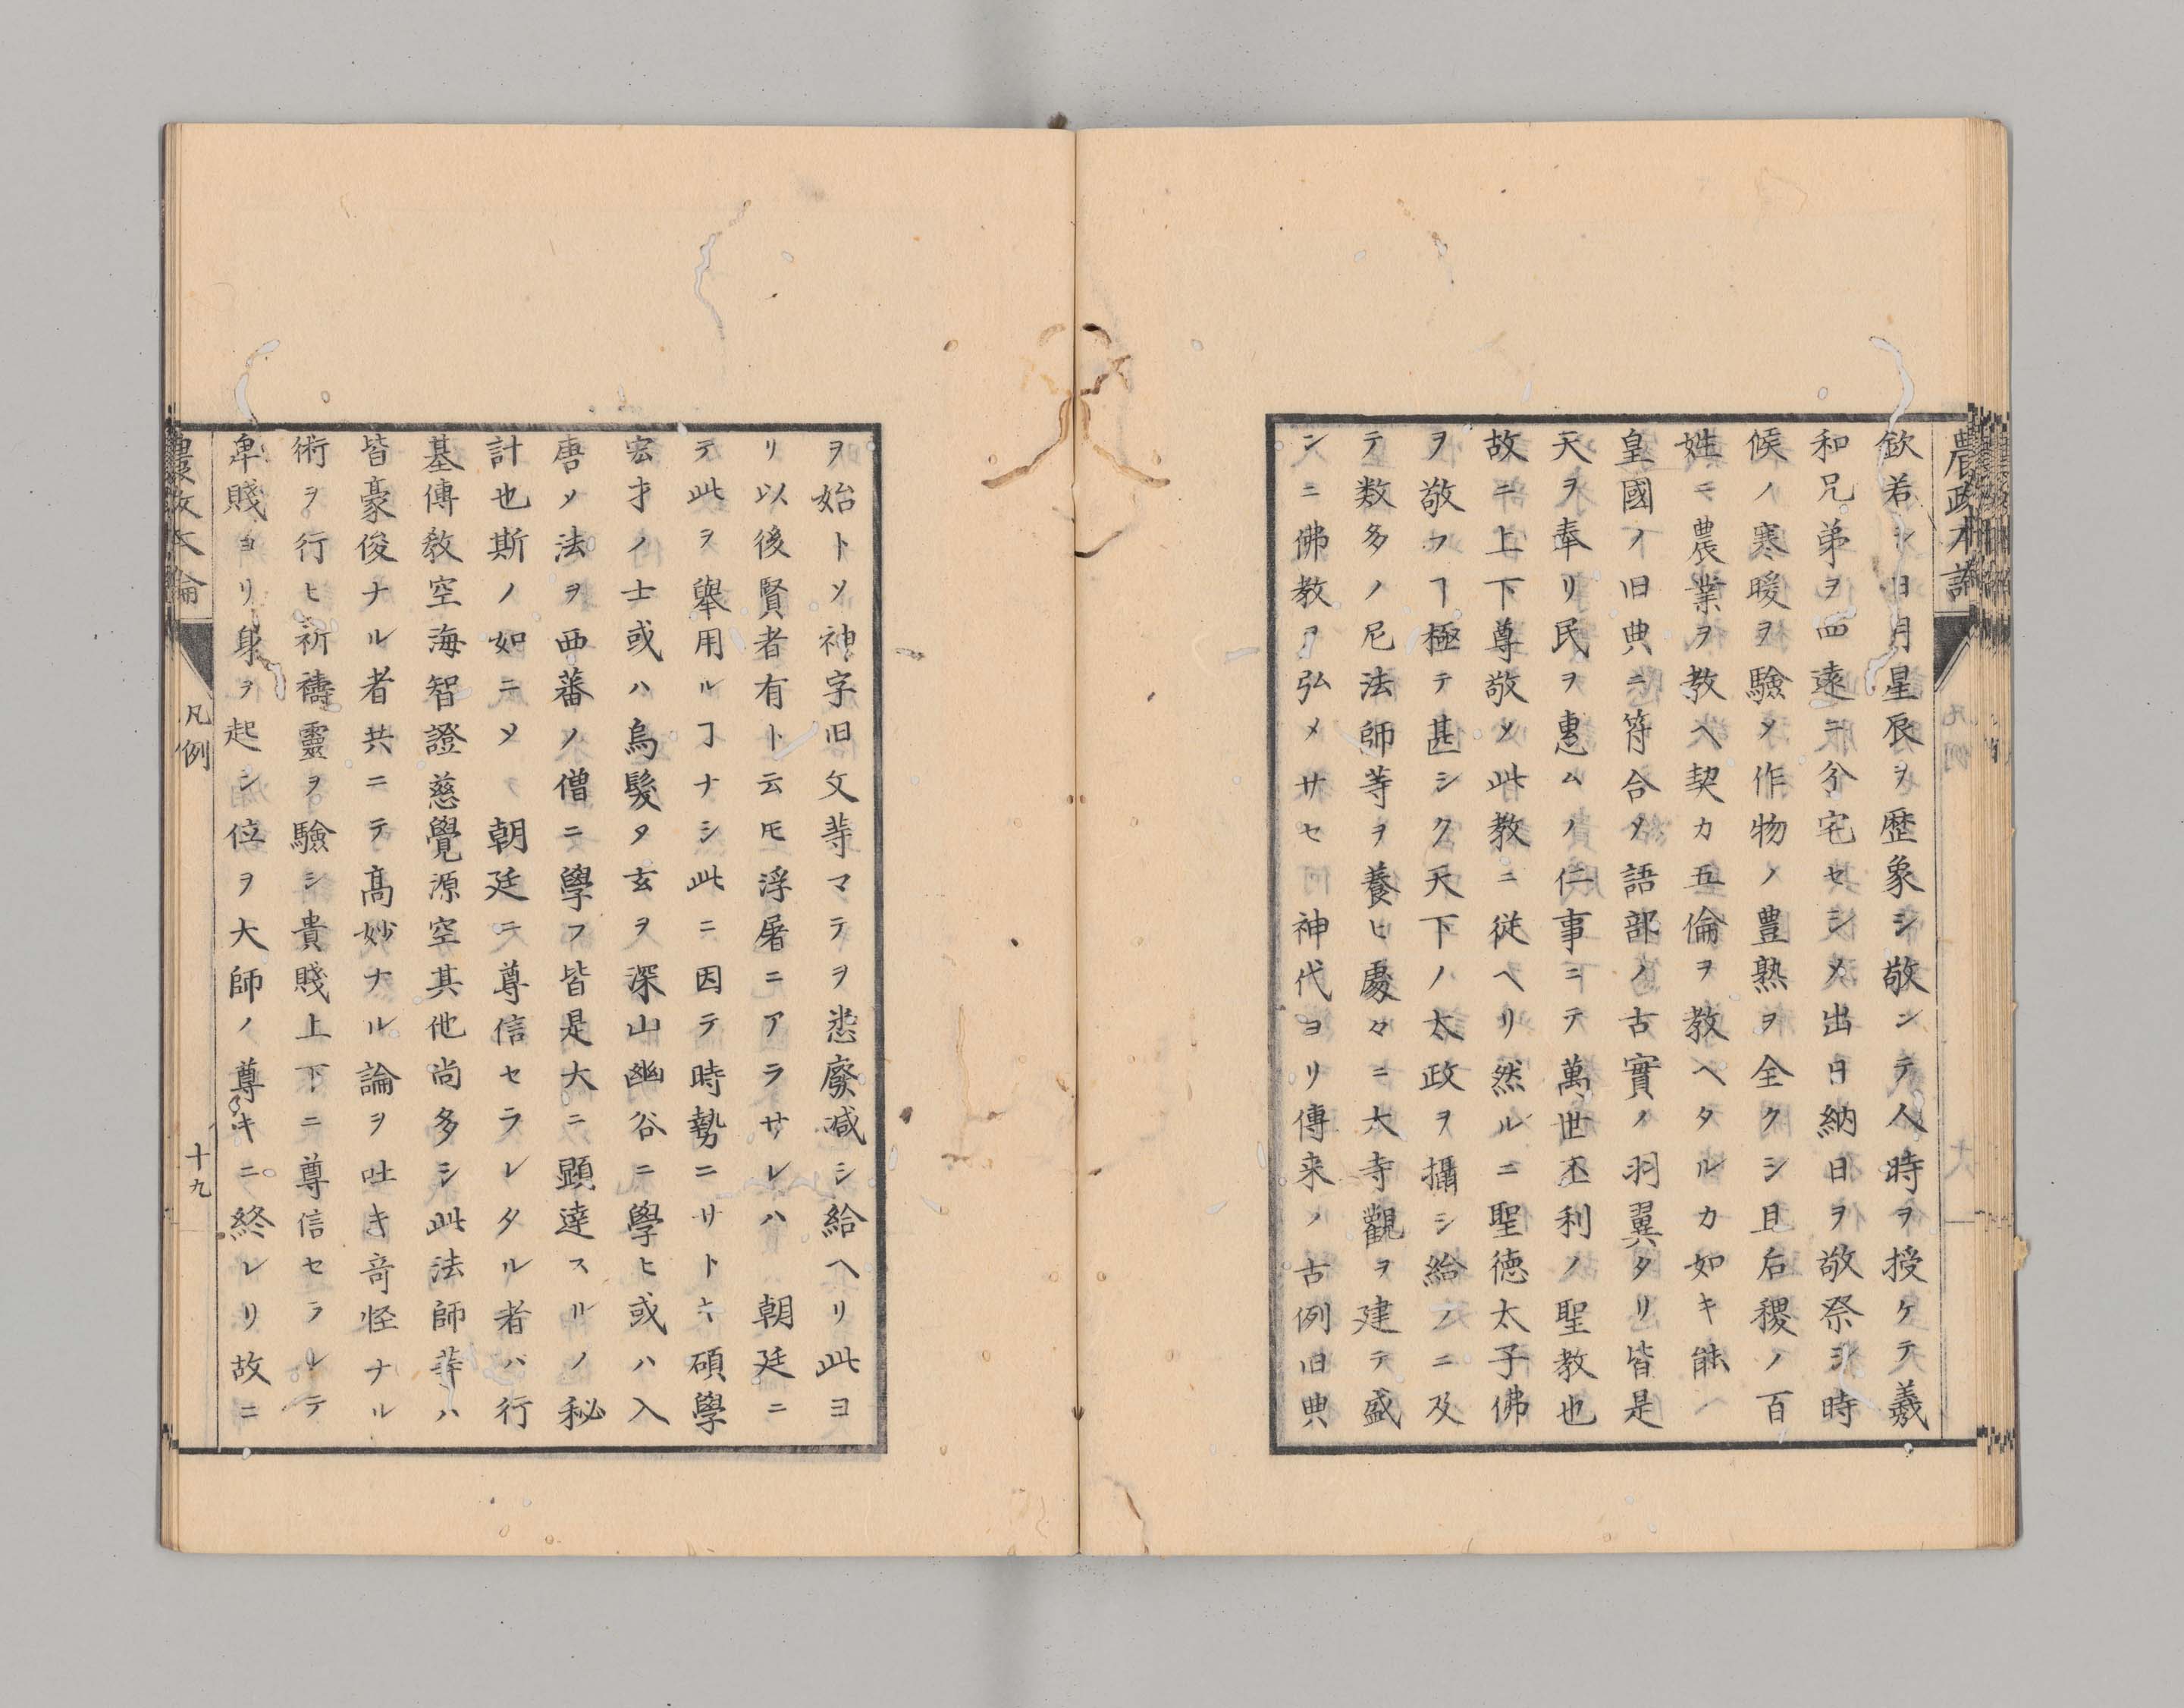 農政本論
欽若シ日月星辰ヲ歴象シ敬ンテ人時ヲ授ケテ羲
和兄弟ヲ四遠ニ分宅セシメ出日納日ヲ敬祭シ時
候ノ寒暖ヲ驗メ作物ノ豊熟ヲ全クシ且后稷ノ百
姓ニ農業ヲ教ヘ契カ五倫ヲ教ヘタルカ如キ能ヘ
皇國ノ旧典ニ符合メ語部ノ古實ノ羽翼タリ皆是
天ヲ奉リ民ヲ惠ムノ仁事ニテ萬世丕利ノ聖教也
故ニ上下尊敬メ此教ニ従ヘリ然ルニ聖徳太子佛
ヲ敬フヿ極テ甚シク天下ノ太政ヲ攝シ給フニ及
テ数多ノ尼法師等ヲ養ヒ處々ニ大寺觀ヲ建テ盛
ンニ佛教ヲ弘メサセ神代ヨリ傳来ノ古例旧典
ヲ始トメ神字旧文等マテヲ悉廢滅シ給ヘリ此ヨ
リ以後賢者有ト云𪜈浮屠ニアラサレハ朝廷ニ
テ此ヲ舉用ルヿナシ此ニ因テ時勢ニサトキ碩學
宏才ノ士或ハ烏髮タ玄ヲ深山幽谷ニ學ヒ或ハ入
唐メ法ヲ西蕃ノ僧ニ學フ皆是大ニ顕達スルノ秘
計也斯ノ如ニメ朝廷ニ尊信セラレタル者バ行
基傳教空海智證慈覺源空其他尚多シ此法師等ハ
皆豪俊ナル者共ニテ高妙ナル論ヲ吐キ奇怪ナル
術ヲ行ヒ祈禱靈ヲ驗シ貴賤上下ニ尊信セラレテ
卑賤ヨリ身ヲ起シ位ヲ大師ノ尊キニ終レリ故ニ
農政本論
凡例
十九